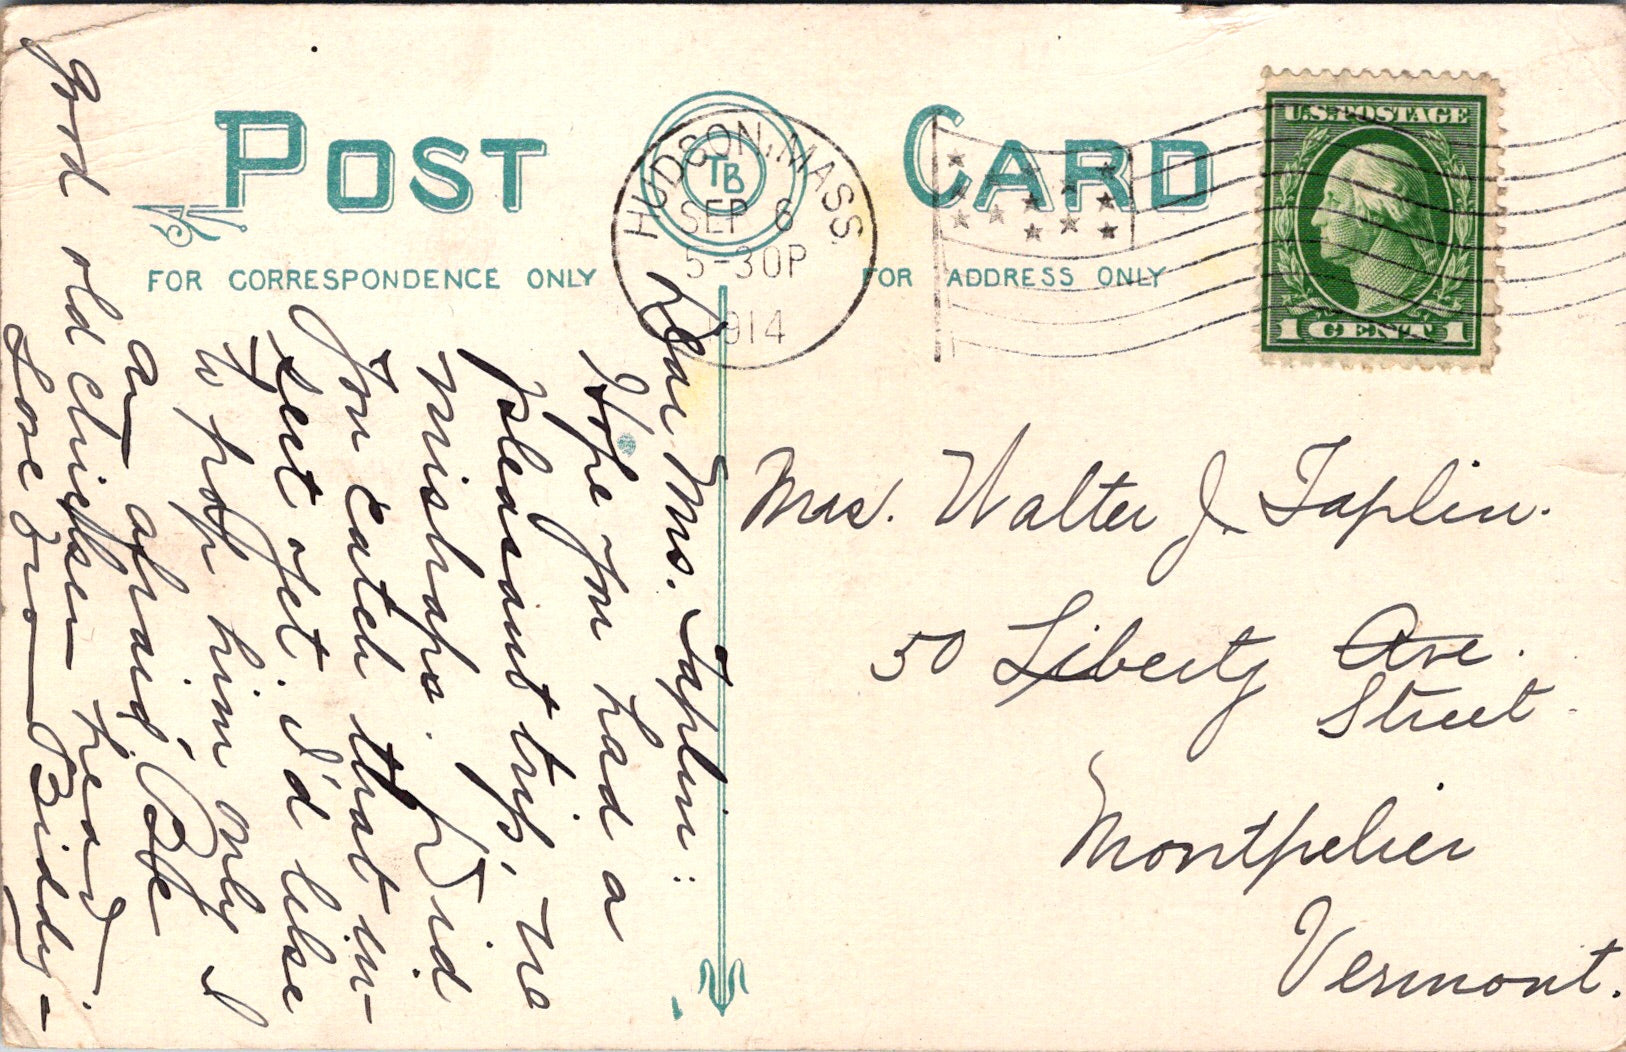 POST CARD
TB
FOR CORRESPONDENCE ONLY
FOR ADDRESS ONLY
HUDSON, MASS.
SEP 6
5-30P
1914
U.S. POSTAGE
1 CENT 1
Dear Mrs. Taplin:
Hope you had a
pleasant trip, no
mishaps. Did
you catch that in-
sect yet. I'd like
to him only I
am afraid. Be
good old chicken head.
Love from Biddy-
Mrs. Walter J. Taplin.
50 Liberty Ave.
Street.
Montpelier
Vermont.